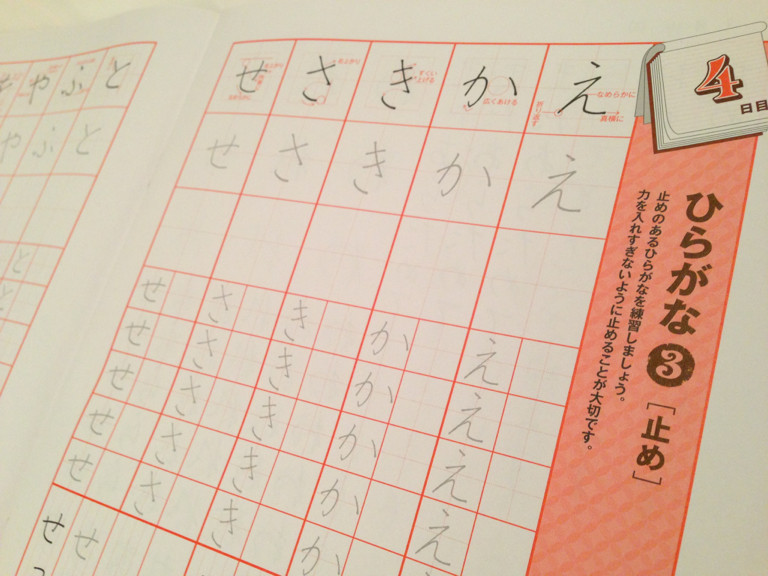 4
日目
ひらがな③[止め]
止めのあるひらがなを練習しましょう。
力を入れすぎないように止めることが大切です。
え
なめらかに
折り返す
真横に
え
え
え
え
え
か
広くあける
か
か
か
か
か
か
き
すくい
上げる
き
き
き
き
き
き
さ
さ
さ
さ
さ
さ
さ
せ
せ
せ
せ
せ
せ
せ
せ せ
と
と
と
と
ふ
ふ
や
や